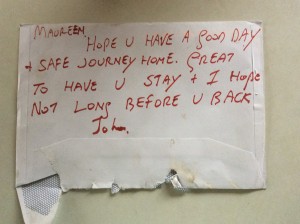 MAUREEN
HOPE U HAVE A GOOD DAY
+ SAFE JOURNEY HOME. GREAT
TO HAVE U STAY + I HOPE
NOT LONG BEFORE U BACK
John.